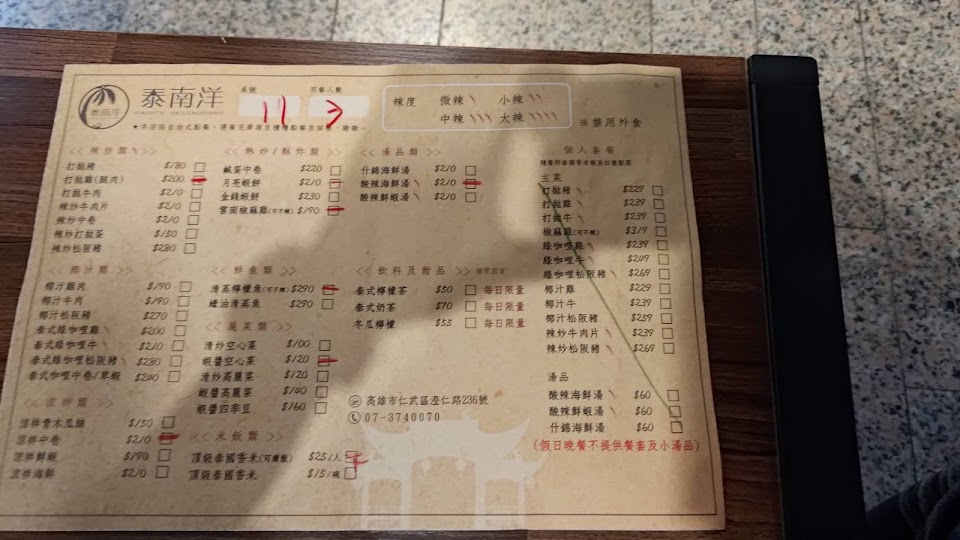 泰南洋
桌號 11
用餐人數 3
辣度 微辣 小辣
中辣 大辣
※禁用外食
<< 辣炒類 >>
打拋豬 $180
打拋雞(腿肉) $200
打拋牛肉 $210
辣炒牛肉片 $210
辣炒中卷 $210
辣炒打拋蛋 $150
辣炒松阪豬 $280
<< 椰汁類 >>
椰汁雞肉 $190
椰汁牛肉 $190
椰汁松阪豬 $270
泰式綠咖哩雞 $200
泰式綠咖哩牛 $210
泰式綠咖哩松阪豬 $280
泰式咖哩中卷/草蝦 $240
<< 涼拌類 >>
涼拌青木瓜絲 $150
涼拌中卷 $210
涼拌鮮蝦 $190
涼拌海鮮 $210
<< 熱炒/酥炸類 >>
鹹蛋中卷 $220
月亮蝦餅 $210
金錢蝦餅 $230
雲南椒麻雞(可不辣) $190
<< 鮮魚類 >>
清蒸檸檬魚(可不辣) $290
蠔油清蒸魚 $290
<< 蔬菜類 >>
清炒空心菜 $100
蝦醬空心菜 $120
清炒高麗菜 $120
蝦醬高麗菜 $140
蝦醬四季豆 $160
<< 米飯類 >>
頂級泰國香米(可續飯) $25/人
頂級泰國香米 $15/碗
<< 湯品類 >>
什錦海鮮湯 $210
酸辣海鮮湯 $210
酸辣鮮蝦湯 $210
<< 飲料及甜品 >>
泰式檸檬茶 $50 每日限量
泰式奶茶 $70 每日限量
冬瓜檸檬 $55 每日限量
高雄市仁武區澄仁路236號
07-3740070
個人套餐
主菜
打拋豬 $229
打拋雞 $239
打拋牛 $239
椒麻雞(可不辣) $319
綠咖哩雞 $239
綠咖哩牛 $249
綠咖哩松阪豬 $269
椰汁雞 $229
椰汁牛 $239
椰汁松阪豬 $259
辣炒牛肉片 $239
辣炒松阪豬 $269
湯品
酸辣海鮮湯 $60
酸辣鮮蝦湯 $60
什錦海鮮湯 $60
(假日晚餐不提供餐套及小湯品)